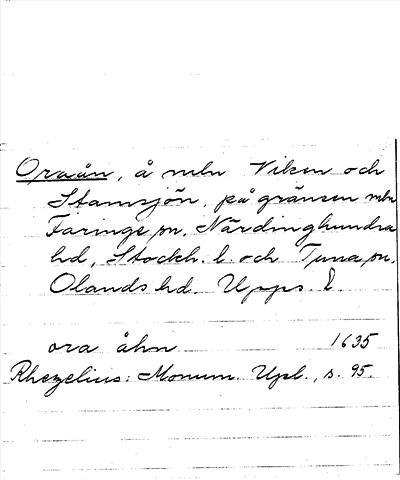 Oraån, å mln Viken och
Stamsjön, på gränsen mln
Faringe sn, Närdinghundra
hd, Stockh. l. och Tuna sn,
Olands hd. Upps. l.
ora åhn 1635
Rhezelius: Monum. Upl., s. 95.